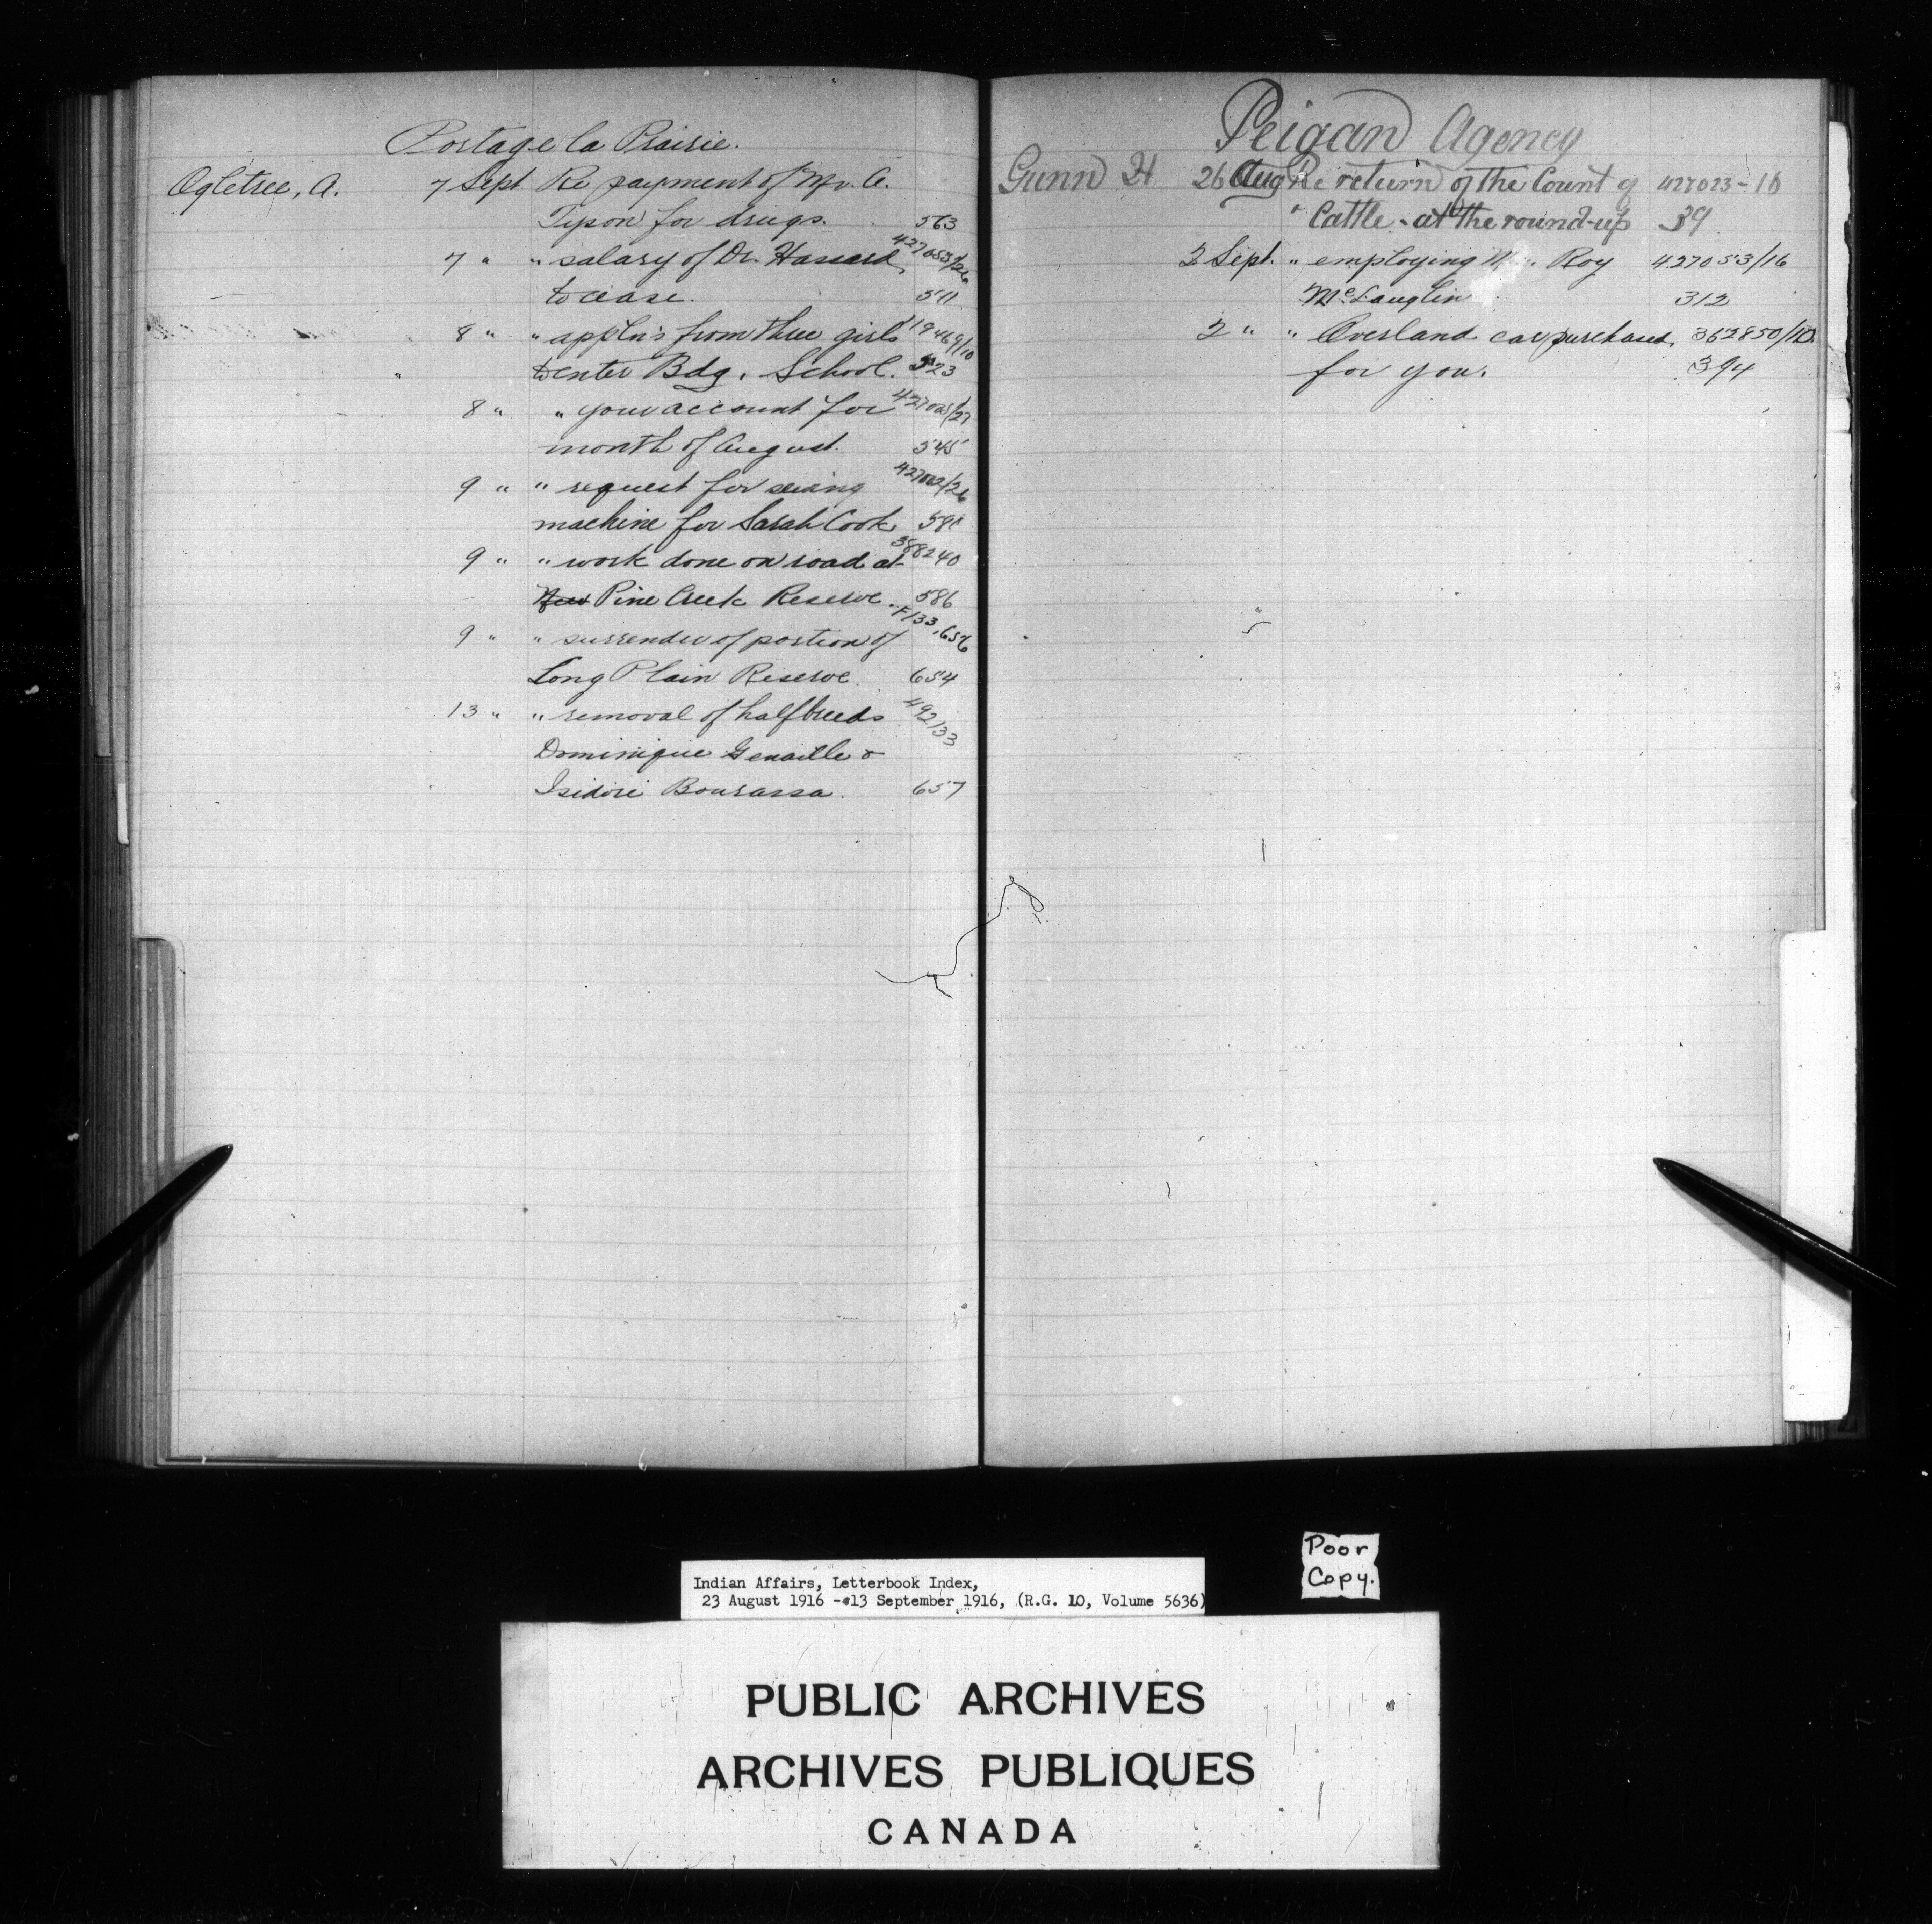 Portage la Prairie.
Ogletree, A. 7 Sept Re payment of Mr. A.
Tyson for drugs. 563
7 " " salary of Dr. Hassard, 427053/26
to cease. 511
8 " " appln's from three girls 119469/10
to enter Bdg. School. 523
8 " " your account for 427005/27
month of August. 545
9 " " request for sewing 427002/26
machine for Sarah Cook. 581
9 " " work done on road at 388240
New Pine Creek Reserve. 586
9 " " surrender of portion of F/33,656
Long Plain Reserve. 654
13 " " removal of halfbreeds 492133
Dominique Genaille &
Isidore Bourassa. 657
Peigan Agency
Gunn H 26 Aug Re return of the Count of 427023-10
" Cattle - at the round-up 39
2 Sept. " employing Roy 427053/16
McLauglin 312
2 " " Overland car purchased. 362850/10
for you. 394
Poor
Copy.
Indian Affairs, Letterbook Index,
23 August 1916 - 13 September 1916, (R.G. 10, Volume 5636)
PUBLIC ARCHIVES
ARCHIVES PUBLIQUES
CANADA